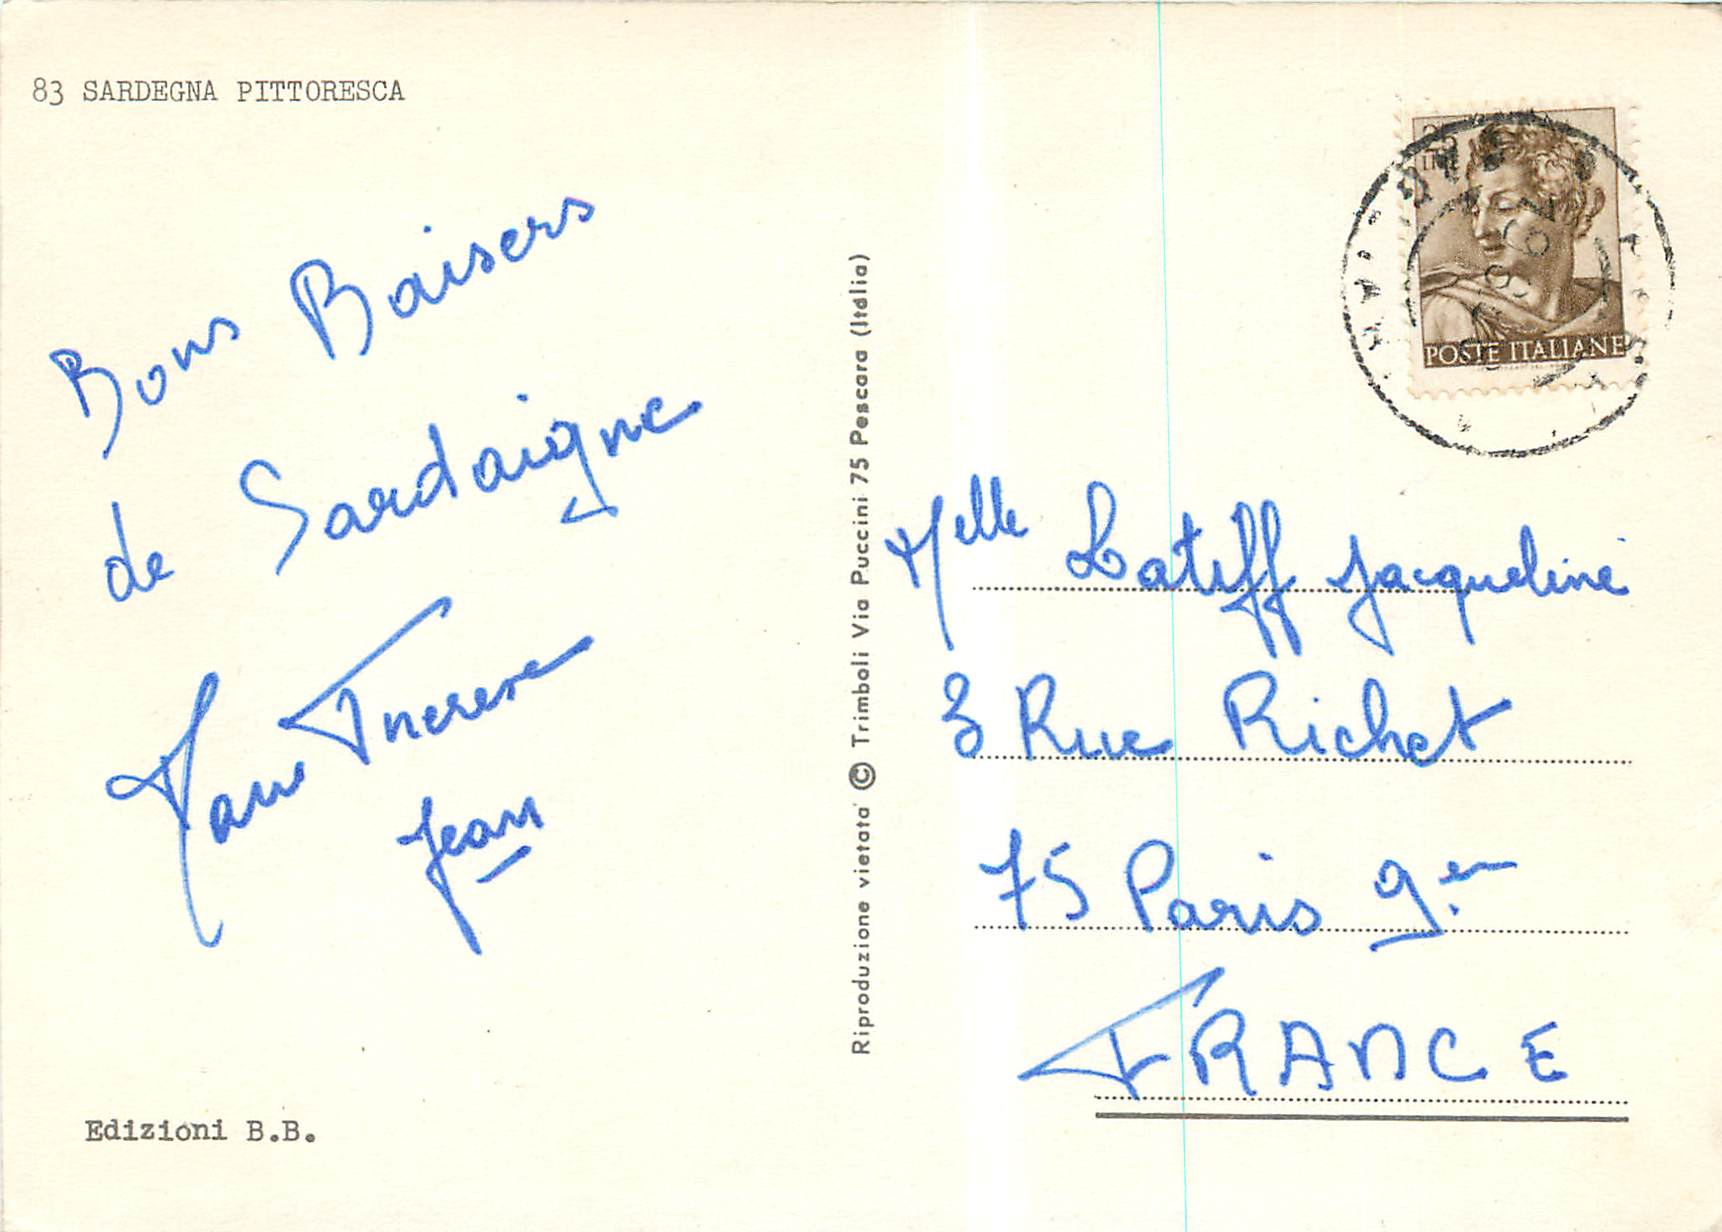 83 SARDEGNA PITTORESCA
Bons Baisers
de Sardaigne
Marie Therese
Jean
Edizioni B.B.
Riproduzione vietata' © Trimboli Via Puccini 75 Pescara (Italia)
25
LIRE
POSTE ITALIANE
Melle Latiff Jacqueline
3 Rue Richet
75 Paris 9em
FRANCE